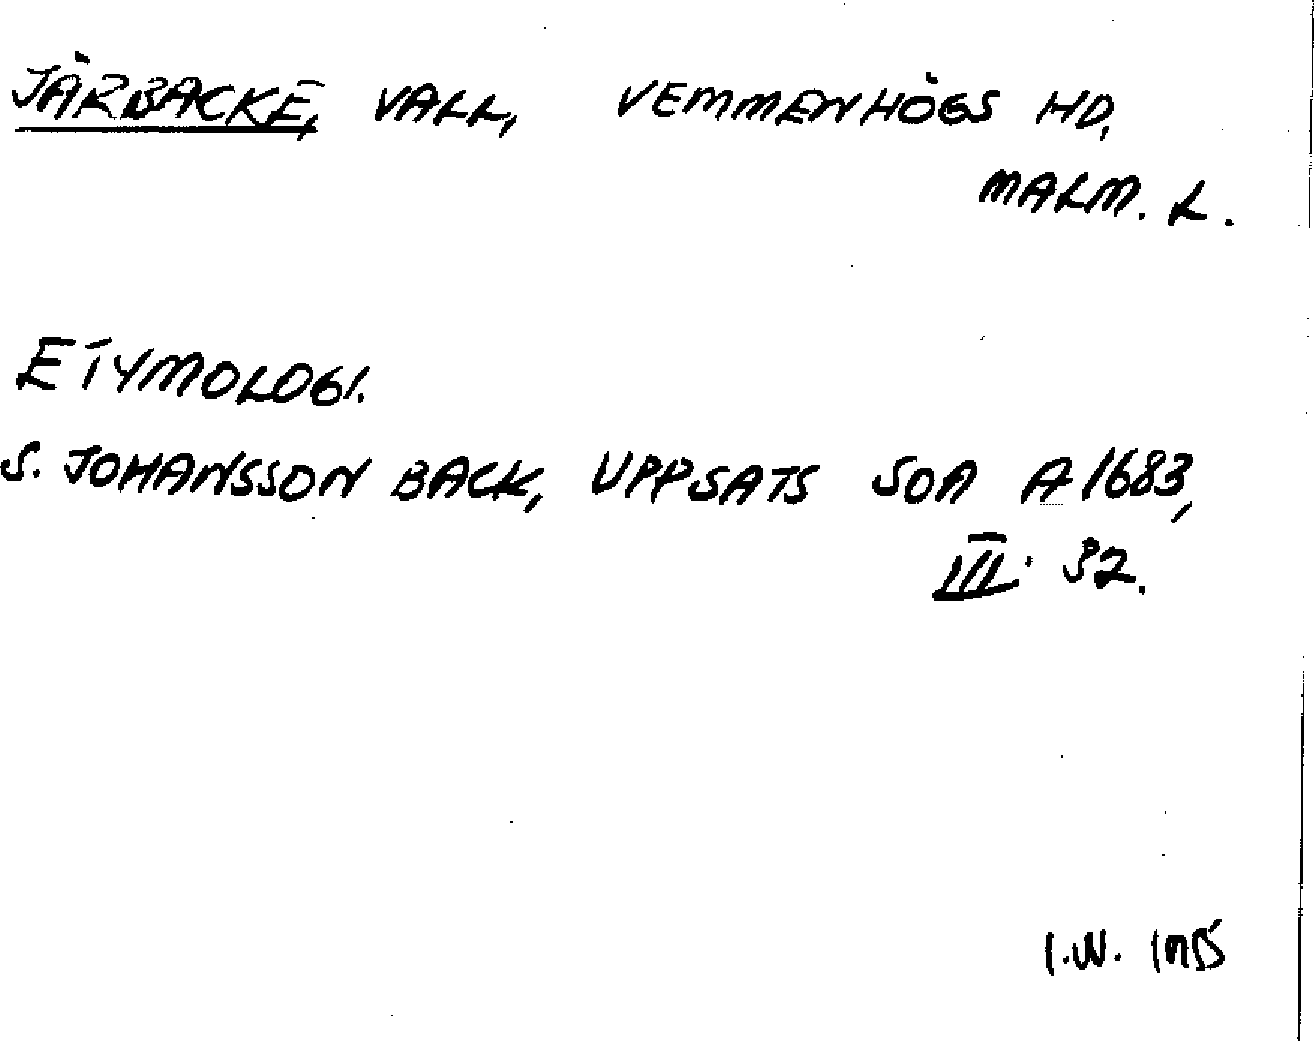 JÄRBACKE, VALL, VEMMENHÖGS HD,
MALM. L.
ETYMOLOGI.
S. JOHANSSON BACK, UPPSATS SOA A 1683,
VII: 32.
I.W.